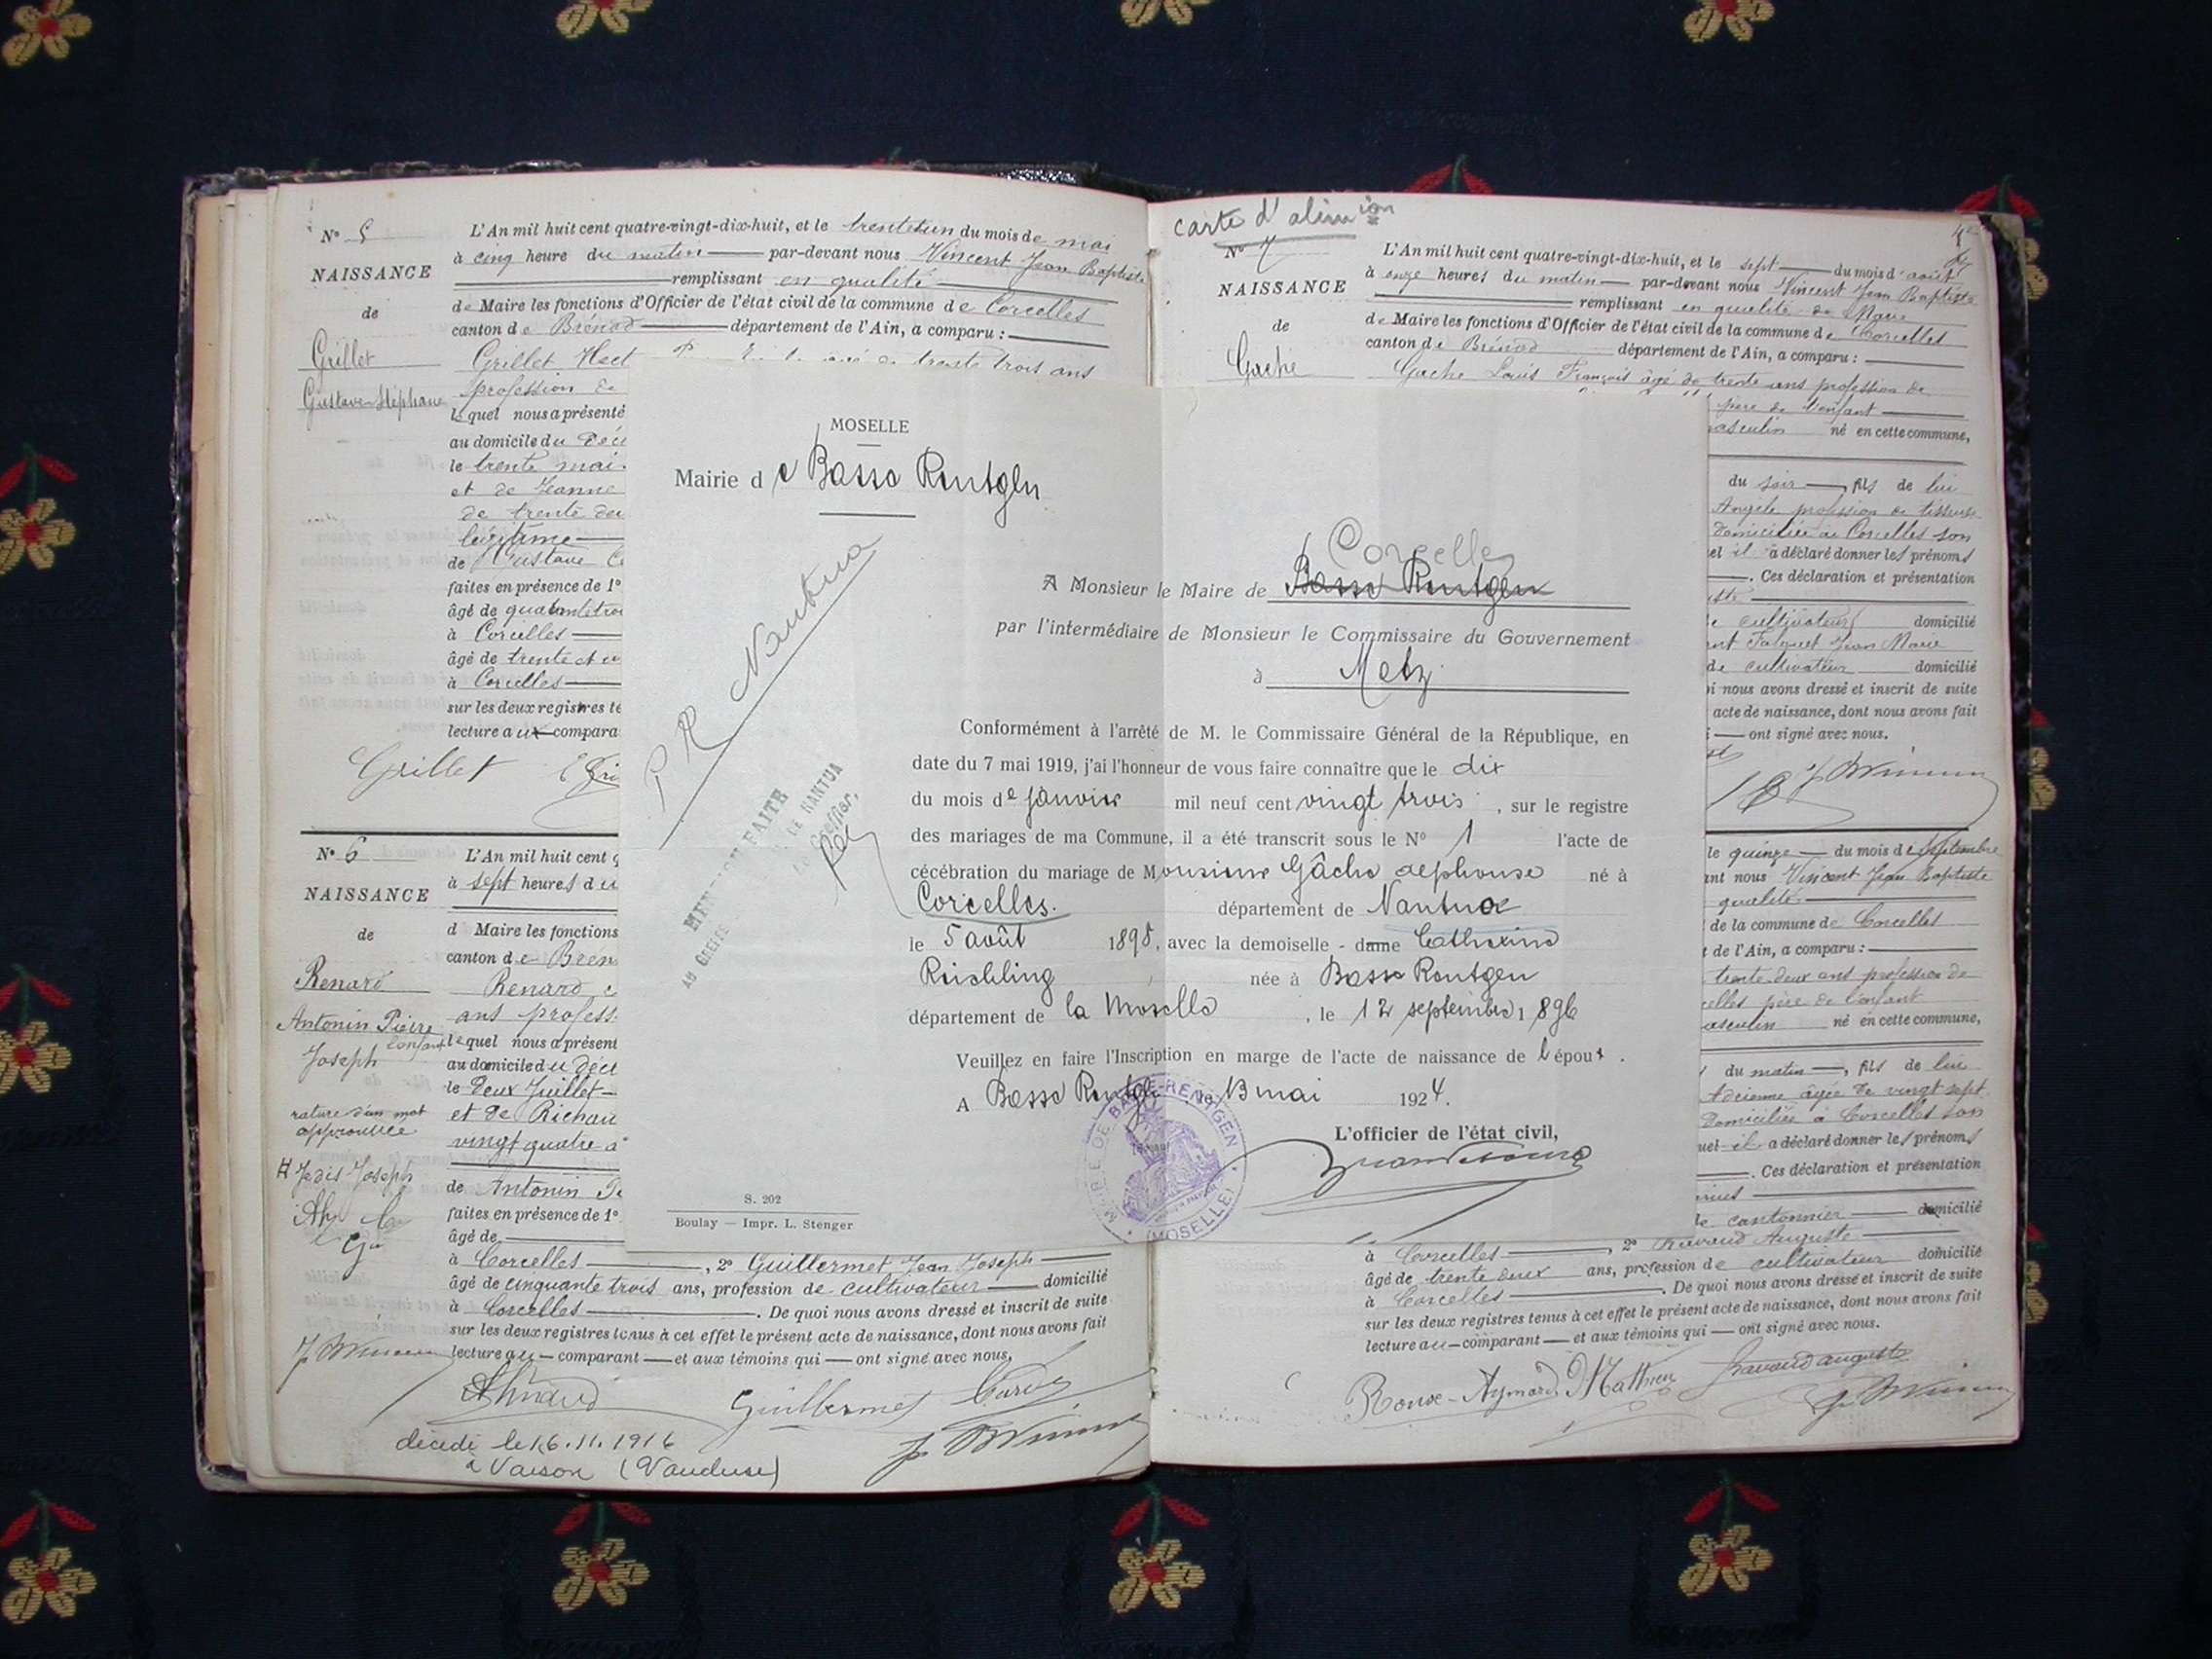 N° 5
NAISSANCE
de
Grillet
Gustave-Stéphane
L'An mil huit cent quatre-vingt-dix-huit, et le trenteun du mois de mai
à cinq heure du matin par-devant nous Vincent Jean Baptiste
remplissant en qualité
de Maire les fonctions d'Officier de l'état civil de la commune de Corcelles
canton de Brénod département de l'Ain, a comparu :
Grillet trente trois ans
profession de
lequel nous a présenté
au domicile du
le trente mai
et de Jeanne
de trente
légitime
de Gustave
faites en présence de 1°
âgé de
à Corcelles
âgé de trente et
à Corcelles
sur les deux registres
lecture aux compara
Grillet
N° 6
NAISSANCE
de
Renard
Antonin Pierre
Joseph
rature d'un mot
approuvée
L'An mil huit cent
à sept heures du
d Maire les fonctions
canton de Bren
Renard
ans profess
lequel nous a présent
au domicile du
le deux Juillet
et de
vingt quatre
de Antonin
faites en présence de 1°
âgé de
à Corcelles , 2° Guillermet Jean Joseph
âgé de cinquante trois ans, profession de cultivateur domicilié
à Corcelles . De quoi nous avons dressé et inscrit de suite
sur les deux registres tenus à cet effet le présent acte de naissance, dont nous avons fait
lecture au comparant et aux témoins qui ont signé avec nous.
Guillermet
décédé le 16.11.1916
à Vaison (Vaucluse)
MOSELLE
Mairie de Basse Rentgen
PR Nantua
MENTION FAITE
AU GREFFE DE NANTUA
Le Greffier,
Corcelles
A Monsieur le Maire de Basse Rentgen
par l'intermédiaire de Monsieur le Commissaire du Gouvernement
à Metz
Conformément à l'arrêté de M. le Commissaire Général de la République, en
date du 7 mai 1919, j'ai l'honneur de vous faire connaître que le dix
du mois de janvier mil neuf cent vingt trois , sur le registre
des mariages de ma Commune, il a été transcrit sous le N° 1 l'acte de
cécébration du mariage de Monsieur Gâche Alphonse né à
Corcelles. département de Nantua
le 5 août 1898, avec la demoiselle - dame Catherine
Reichling née à Basse Rentgen
département de la Moselle , le 12 septembre 1896
Veuillez en faire l'Inscription en marge de l'acte de naissance de l'époux .
A Basse Rentgen, le 13 mai 1924.
L'officier de l'état civil,
MAIRIE DE BASSE-RENTGEN
(MOSELLE)
S. 202
Boulay — Impr. L. Stenger
carte d'alimion
N° 7
NAISSANCE
de
Gache
L'An mil huit cent quatre-vingt-dix-huit, et le sept du mois d'août
à onze heures du matin par-devant nous Vincent Jean Baptiste
remplissant en qualité de Maire
de Maire les fonctions d'Officier de l'état civil de la commune de Corcelles
canton de Brénod département de l'Ain, a comparu :
Gache Louis François âgé de trente ans profession de
père de l'enfant
masculin né en cette commune,
du soir , fils de lui
Angèle profession de tisseuse
domiciliée à Corcelles son
il a déclaré donner les prénoms
. Ces déclaration et présentation
cultivateur domicilié
Jean Marie
de cultivateur domicilié
nous avons dressé et inscrit de suite
acte de naissance, dont nous avons fait
ont signé avec nous.
le quinze du mois de Septembre
nous Vincent Jean Baptiste
qualité
de la commune de Corcelles
de l'Ain, a comparu :
trente deux ans profession de
père de l'enfant
masculin né en cette commune,
du matin , fils de lui
âgée de vingt sept
domiciliée à Corcelles son
il a déclaré donner les prénoms
. Ces déclaration et présentation
cantonnier domicilié
à Corcelles , 2° Ravaud Auguste
âgé de trente deux ans, profession de cultivateur domicilié
à Corcelles . De quoi nous avons dressé et inscrit de suite
sur les deux registres tenus à cet effet le présent acte de naissance, dont nous avons fait
lecture au comparant et aux témoins qui ont signé avec nous.
Roux-Aymard Mathieu Ravaud auguste